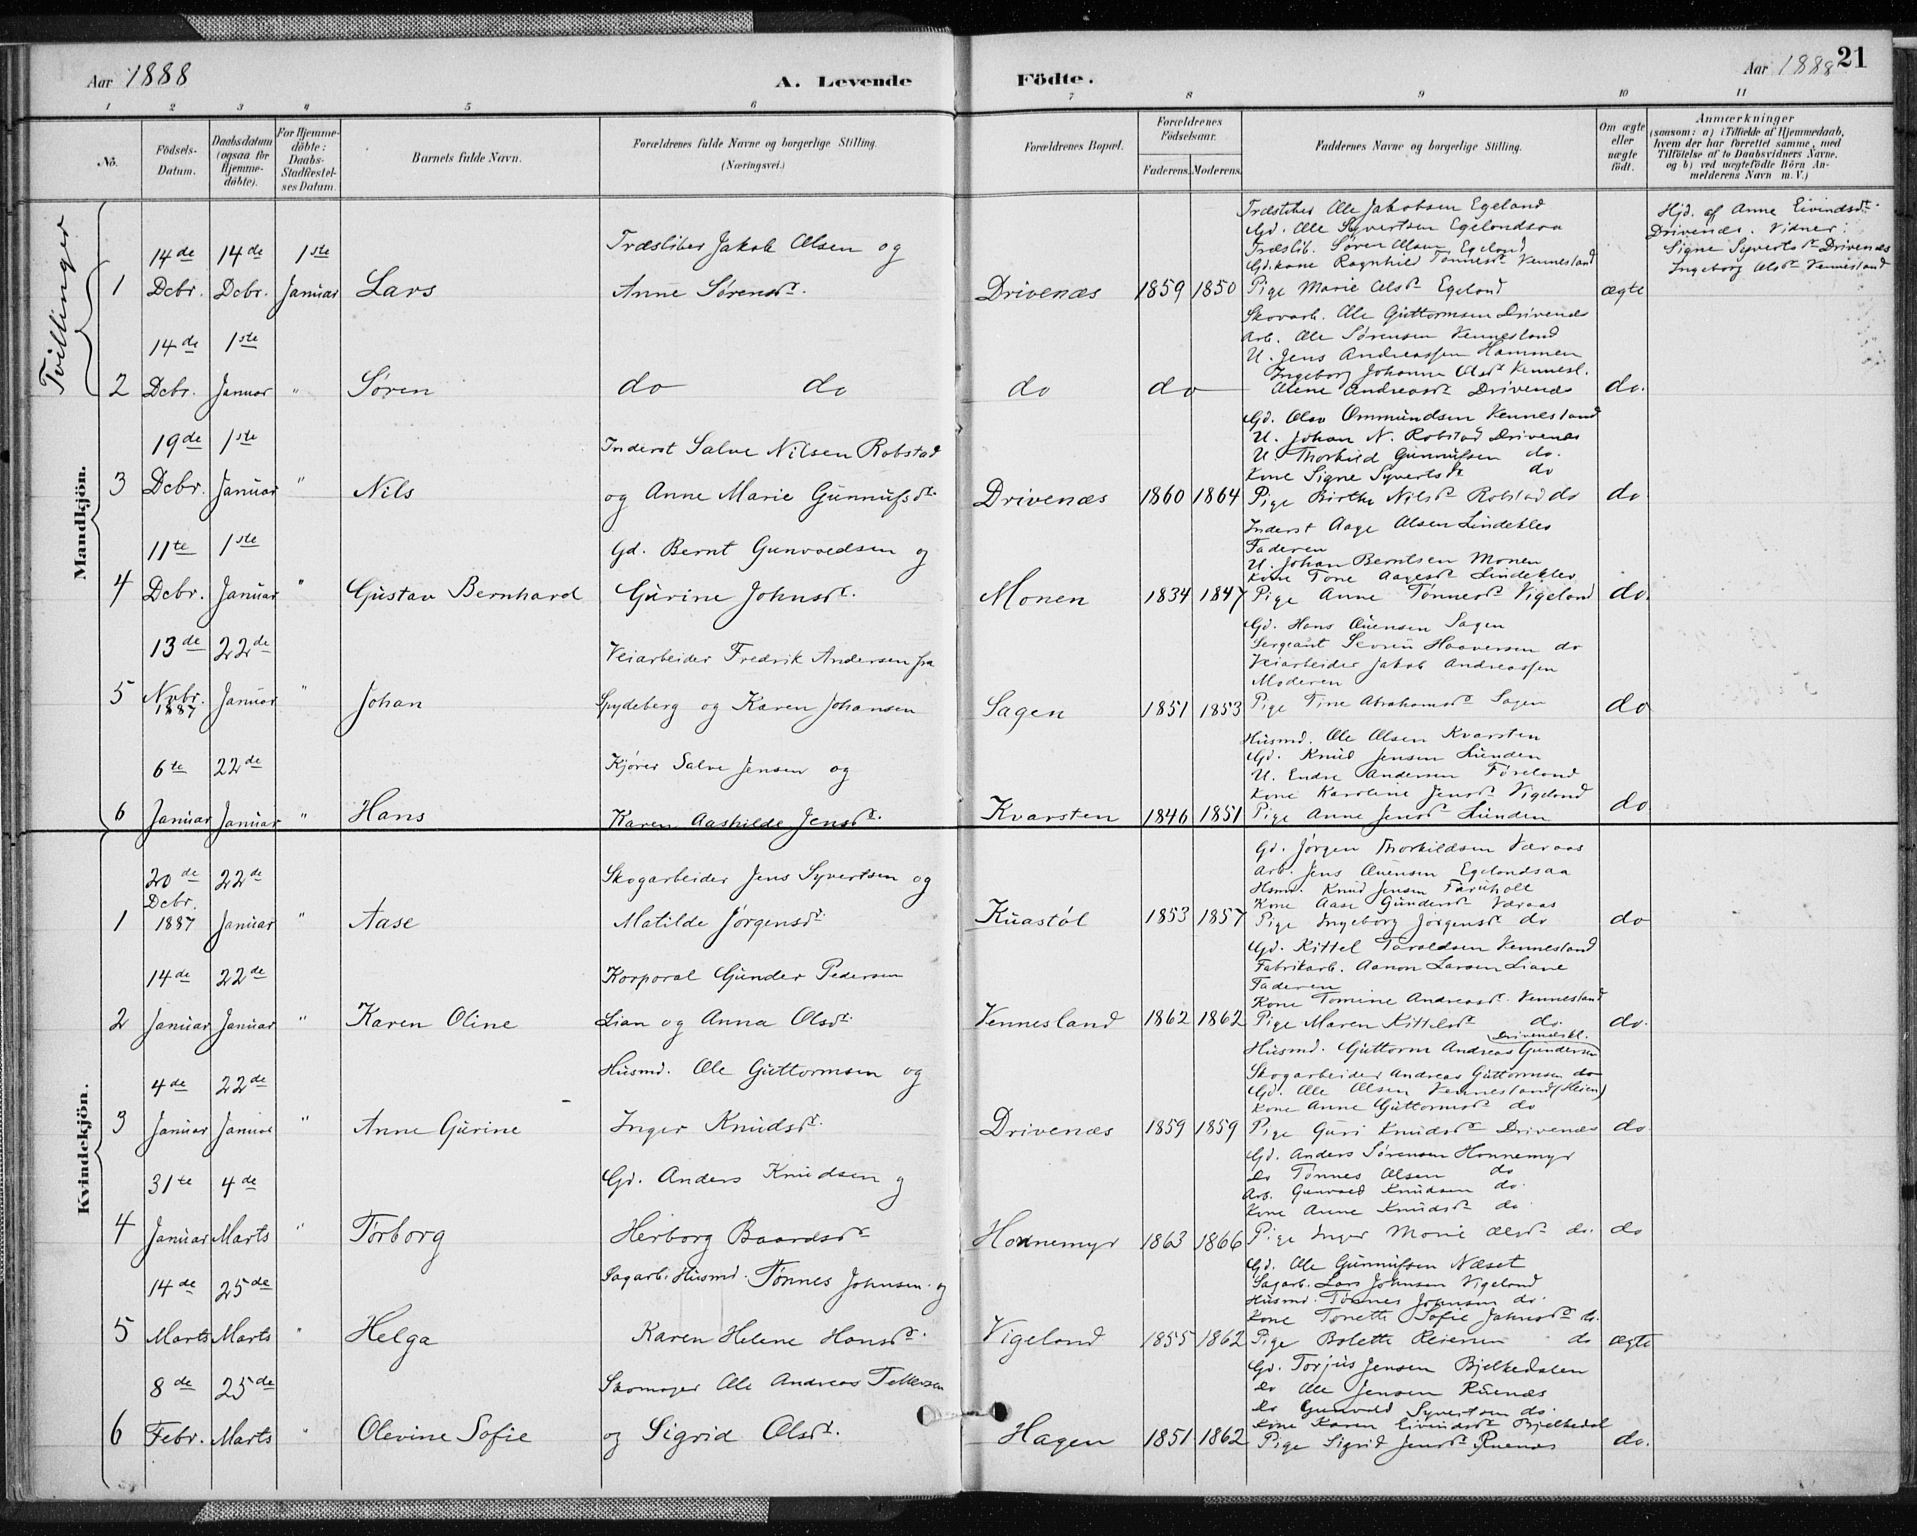 Aar 1888
A. Levende
Födte.
Aar 1888
21
1 2 3 4 5 6 7 8 9 10 11
No.
Födsels-Datum.
Daabsdatum (ogsaa för Hjemmedöbte).
For Hjemmedöbte: Daabs-Stadfæstelses Datum.
Barnets fulde Navn.
Forældrenes fulde Navne og borgerlige Stilling. (Næringsvei.)
Forældrenes Bopæl.
Forældrenes Födselsaar.
Faderens. Moderens.
Faddernes Navne og borgerlige Stilling.
Om ægte eller uægte födt.
Anmærkninger
(saasom: a) i Tilfælde af Hjemmedaab, hvem der har forrettet samme, med Tilföielse af to Daabsvidners Navne, og b) ved uægtefödte Börn Anmelderens Navn m. V.)
Tvillinger
Mandkjön.
1 14de Dcbr. 14de Dcbr. 1ste Januar Lars
Træsliber Jakob Olsen og
Anne Sørensdt.
Drivenæs 1859 1850
Træsliber Ole Jakobsen Egeland
Gd. Ole Syvertsen Egelandsaa
Træslib. Søren Olsen Egeland
Gd.kone Ragnhild Tønnesdt Vennesland
Pige Marie Olsdt Egeland
ægte
Hjd. af Anne Eivindsdt.
Drivenæs. Vidner:
Signe Syvertsdt Drivenæs
Ingeborg Olsdt Vennesland
2 14de Dcbr. 1ste Januar " Søren
do do
do do
Skovarb. Ole Guttormsen Drivenæs
Arb. Ole Sørensen Vennesland
U. Jens Andreassen Hammen
Ingeborg Johanne Olsdt Vennesl.
Olene Andreasdt Drivenæs
do.
3 19de Dcbr. 1ste Januar " Nils
Inderst Salve Nilsen Robstad
og Anne Marie Gunnufsdt.
Drivenæs 1860 1864
Gd. Olav Ommundsen Vennesland
U. Johan N. Robstad Drivenæs
U. Thorkild Gunnufsen do.
Kone Signe Syvertsdt do
Pige Birthe Nilsdt Robstad do
do
4 11te Dcbr. 1ste Januar " Gustav Bernhard
Gd. Bernt Gunvaldsen og
Gurine Johnsdt.
Monen 1834 1847
Inderst Aage Olsen Lindeklev
Faderen
U. Johan Berntsen Monen
Kone Tone Aagesdt Lindeklev
Pige Anne Tønnesdt Vigeland
do.
5 13de Nvbr. 1887 22de Januar " Johan
Veiarbeider Fredrik Andersen fra
Spydeberg og Karen Johansen
Sagen 1851 1853
Gd. Hans Ouensen Sagen
Sergeant Severin Haaversen do
Veiarbeider Jakob Andreassen
Moderen
Pige Tine Abrahamsdt Sagen
do
6 6te Januar 22de Januar " Hans
Kjører Salve Jensen og
Karen Aashilde Jensdt.
Kvarsten 1846 1851
Husmd. Ole Olsen Kvarsten
Gd. Knud Jensen Lunden
U. Endre Andersen Føreland
Kone Karoline Jensdt Vigeland
Pige Anne Jensdt Lunden
do
Kvindekjön.
1 20de Dcbr. 1887 22de Januar " Aase
Skogarbeider Jens Syvertsen og
Matilde Jørgensdt.
Kuastøl 1853 1857
Gd. Jørgen Thorkildsen Væraas
Arb. Jens Ouensen Egelandsaa
Husmd. Knud Jensen
Kone Aase Gundersdt Væraas
Pige Ingeborg Jørgensdt do
do
2 14de Januar 22de Januar " Karen Oline
Korporal Gunder Pedersen
Lian og Anna Olsdt.
Vennesland 1862 1862
Gd. Kittel Taraldsen Vennesland
Fabrikarb. Aanon Larsen Liane
Faderen
Kone Tomine Andreasdt. Vennesland
Pige Maren Kittelsdt do.
do.
3 4de Januar 22de Januar " Anne Gurine
Husmd. Ole Guttormsen og
Inger Knudsdt.
Drivenæs 1859 1859
Drivenæskl.
Husmd. Guttorm Andreas Gundersen
Skogarbeider Andreas Guttormsen do
Gd. Ole Olsen Vennesland (Heien)
Kone Anne Guttormsdt do
Pige Guri Knudsdt Drivenæs
do.
4 31te Januar 4de Marts " Torborg
Gd. Anders Knudsen og
Herborg Baardsdt
Honnemyr 1863 1866
Gd. Anders Sørensen Honnemyr
Do Tønnes Olsen do
Arb. Gunvald Knudsen do.
Kone Anne Knudsdt do.
Pige Inger Marie Olsdt do.
do
5 14de Marts 25de Marts " Helga
Sagarb. Husmd. Tønnes Johnsen og
Karen Helene Hansdt.
Vigeland 1855 1862
Gd. Ole Gunnufsen Næset
Sagarb. Lars Johnsen Vigeland
Husmd. Tønnes Johnsen do.
Kone Tonette Sofie Johnsdt do.
Pige Bolette Reiersen do
ægte
6 8de Febr. 25de Marts " Olevine Sofie
Skomager Ole Andreas Tellefsen
og Sigrid Olsdt.
Hagen 1851 1862
Gd. Torjus Jensen Bjelkedalen
Do Ole Jensen Ruenæs
Do Gunvald Syvertsen do.
Kone Karen Eivindsdt Bjelkedal
Pige Sigrid Jensdt Ruenæs
do.